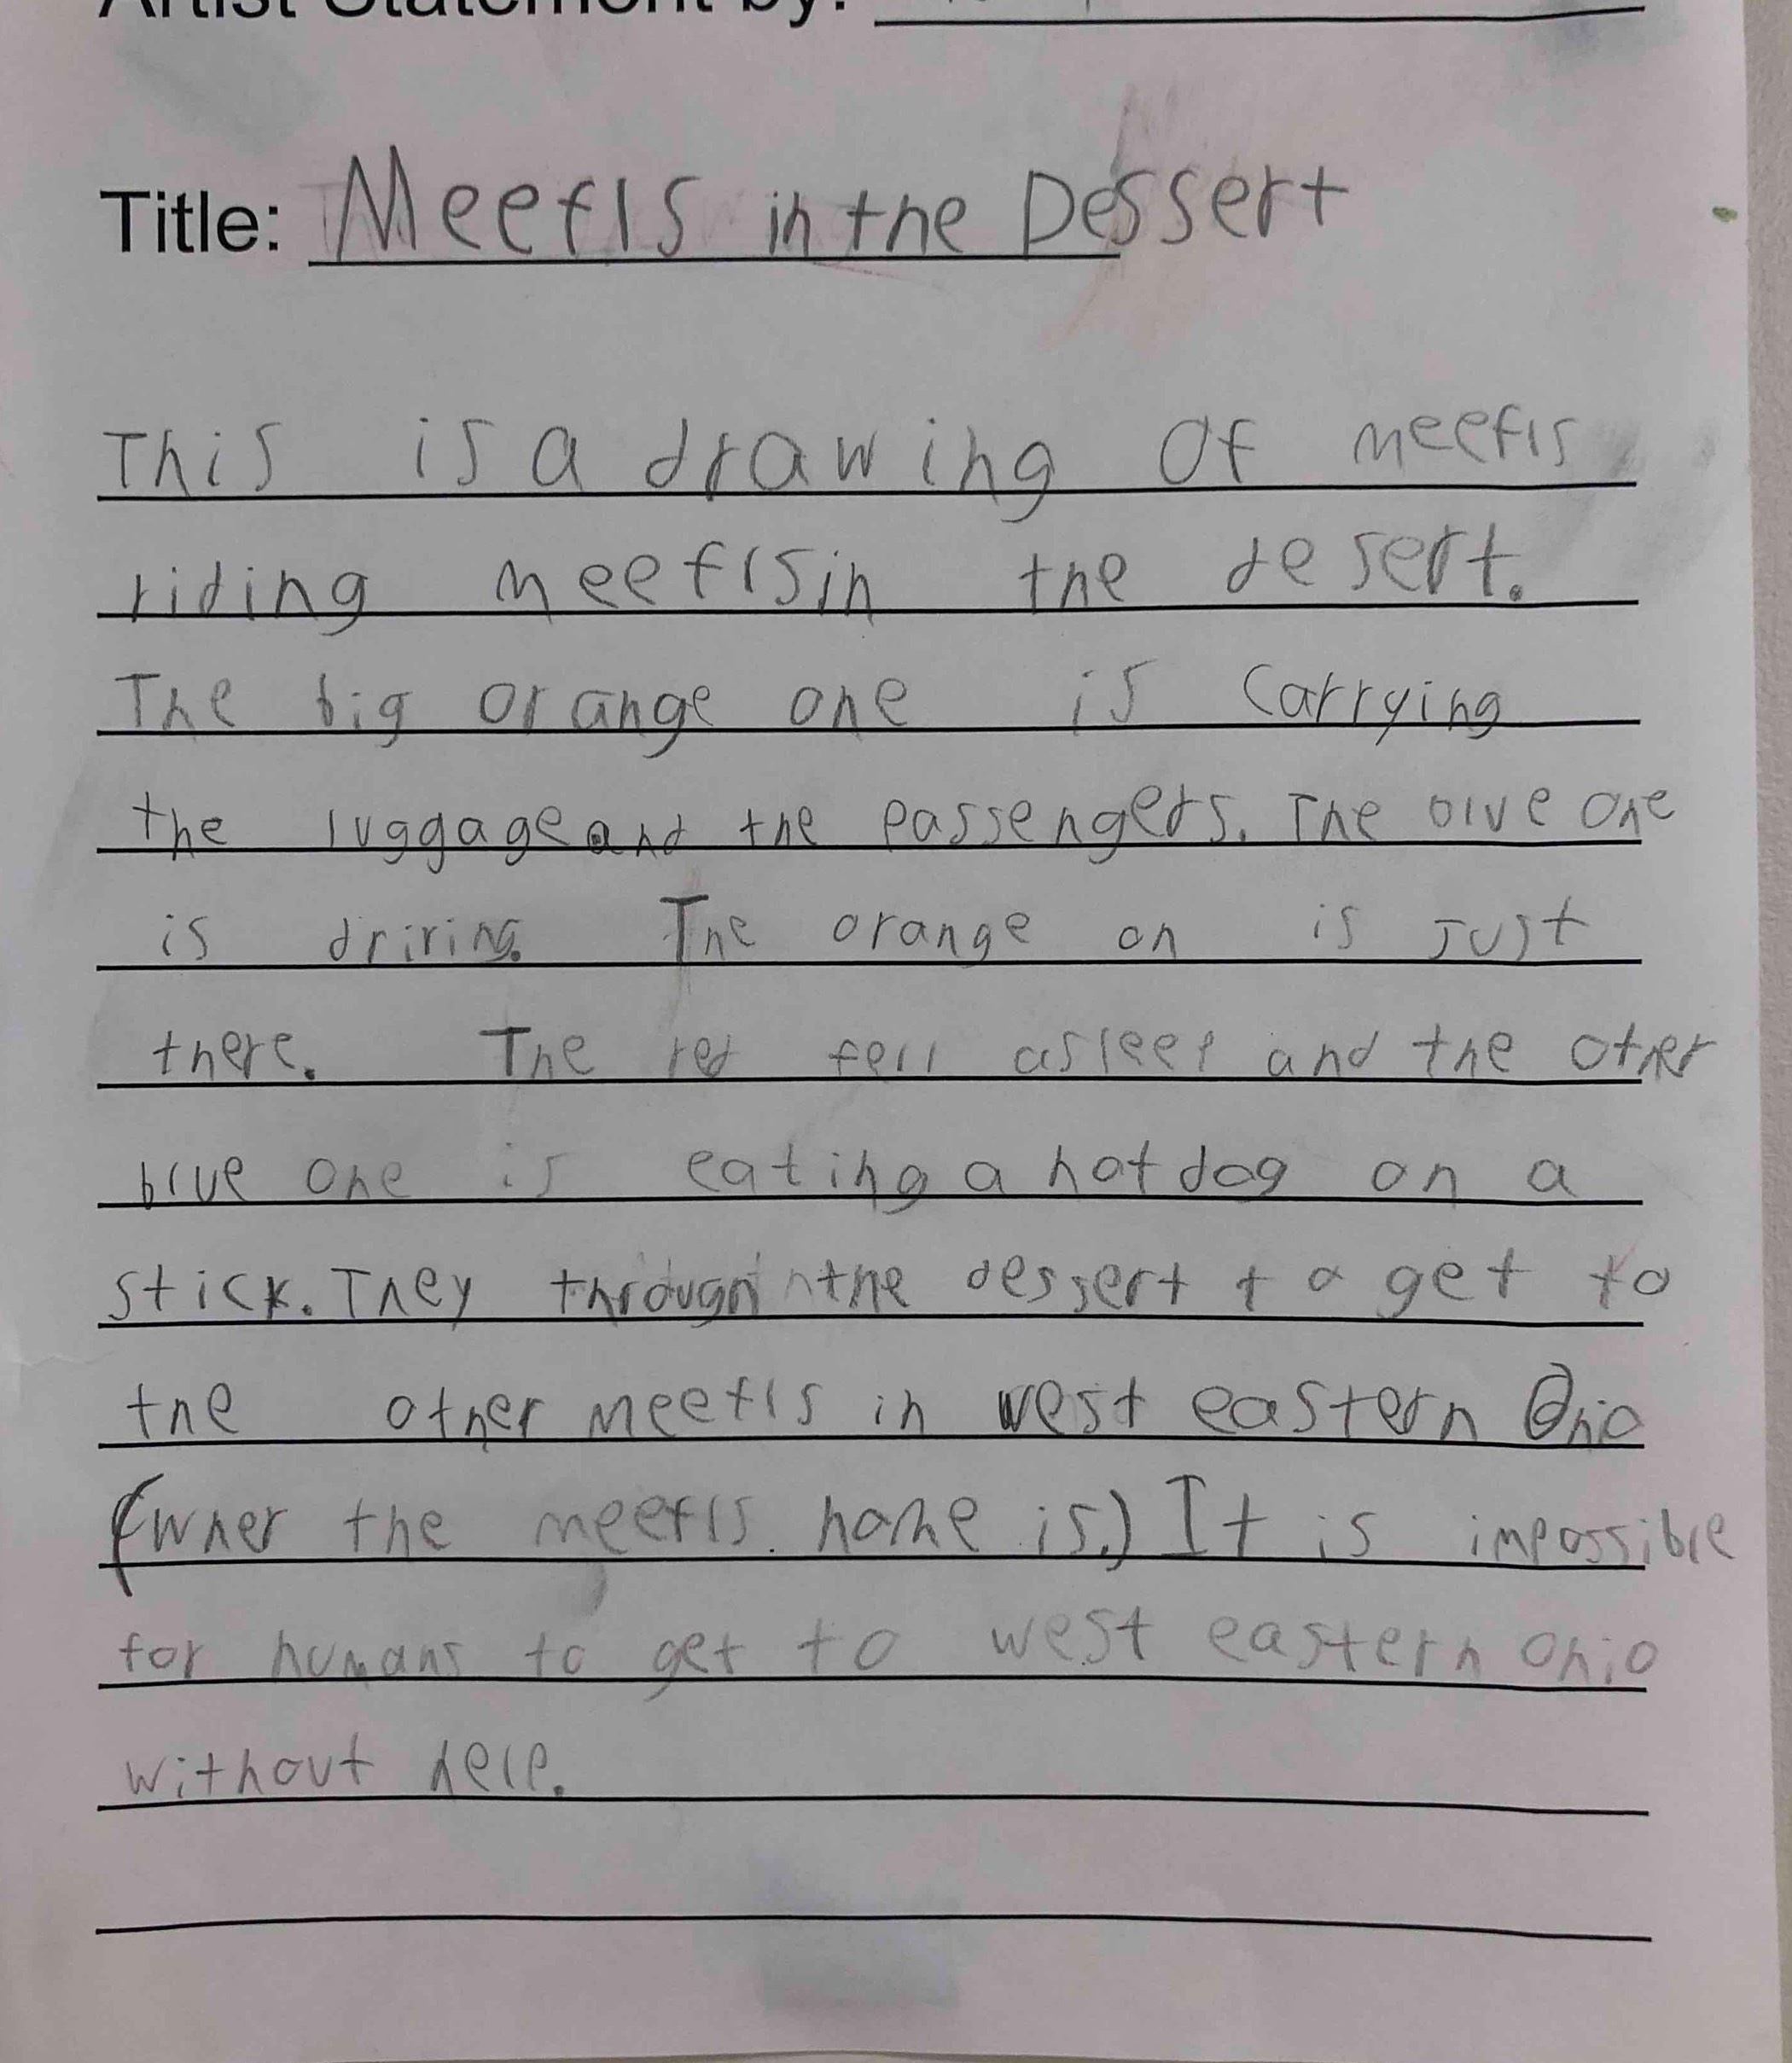 Artist Statement by:
Title: Meefls in the Dessert
This is a drawing of meefls
riding meefls in the desert.
The big orange one is carrying
the luggage and the passengers. The blue one
is driving. The orange on is just
there. The red fell asleep and the other
blue one is eating a hot dog on a
stick. They through the dessert to get to
the other meefls in west eastern Ohio
(wher the meefls home is.) It is impossible
for humans to get to west eastern Ohio
without help.